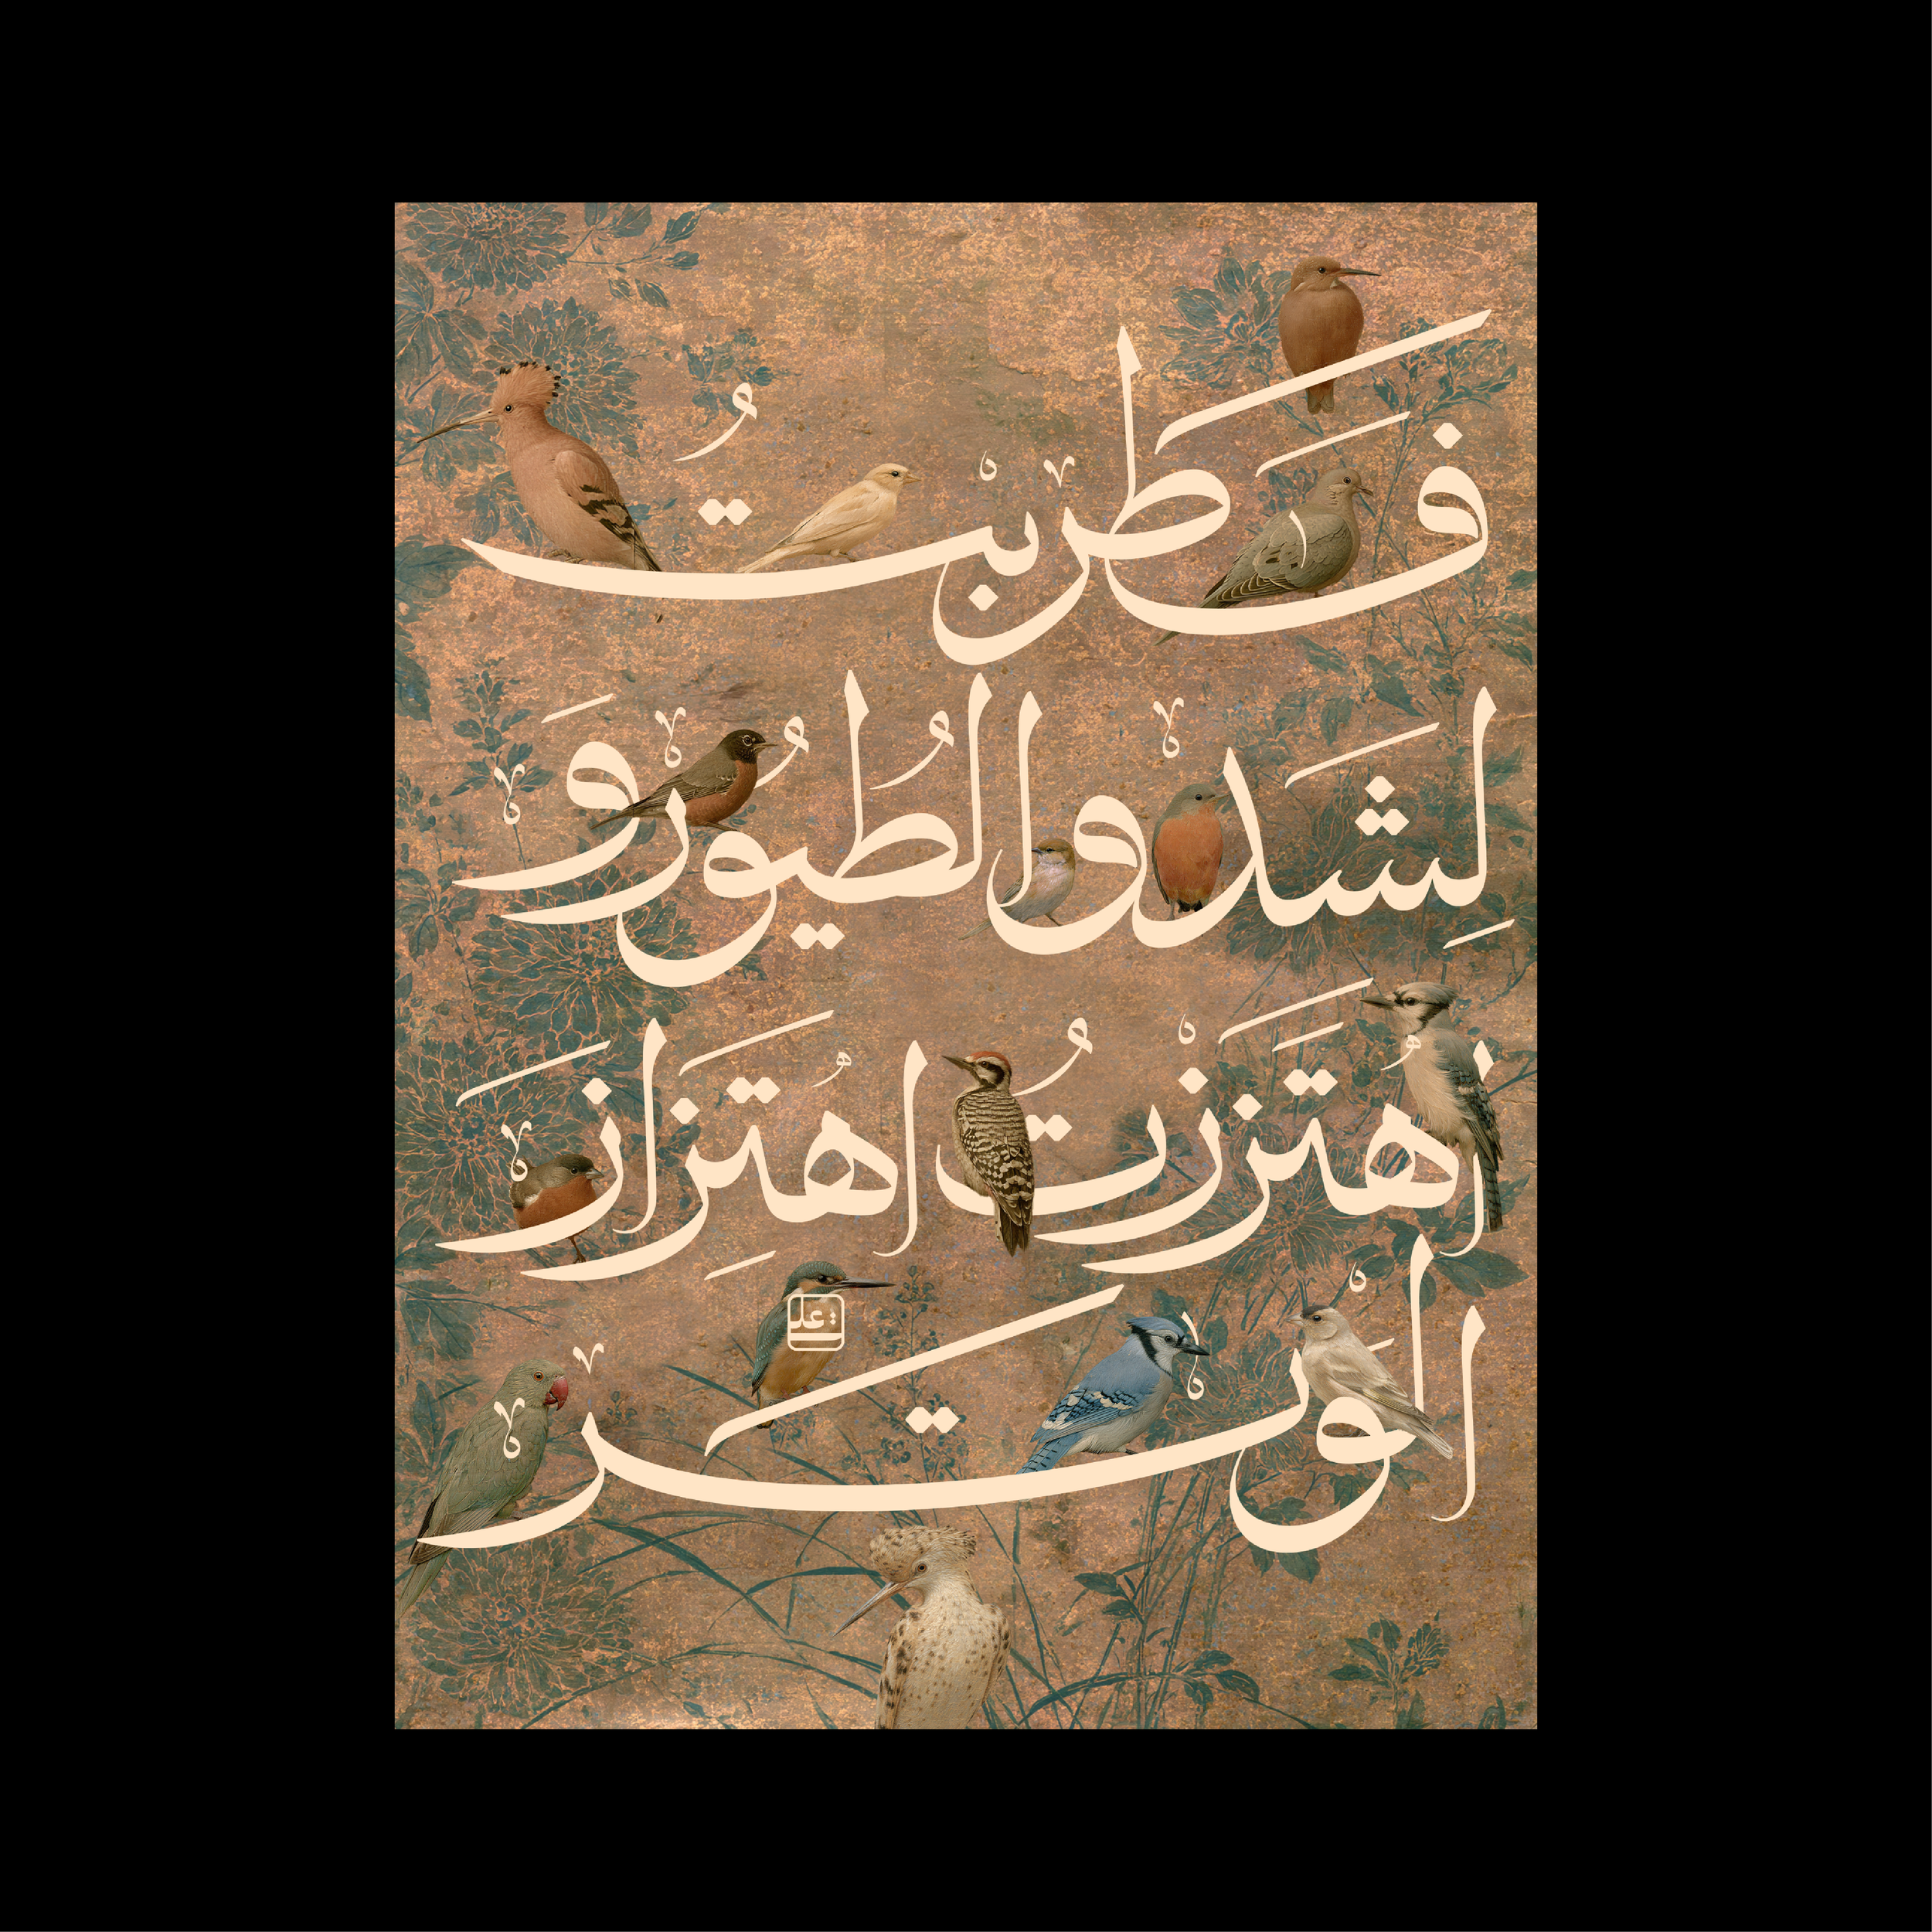 فَطَربْتُ
لِشَدو الطُيُور و
اُهتَزَزْتُ اهُتِزَازَ
الوَْتَر